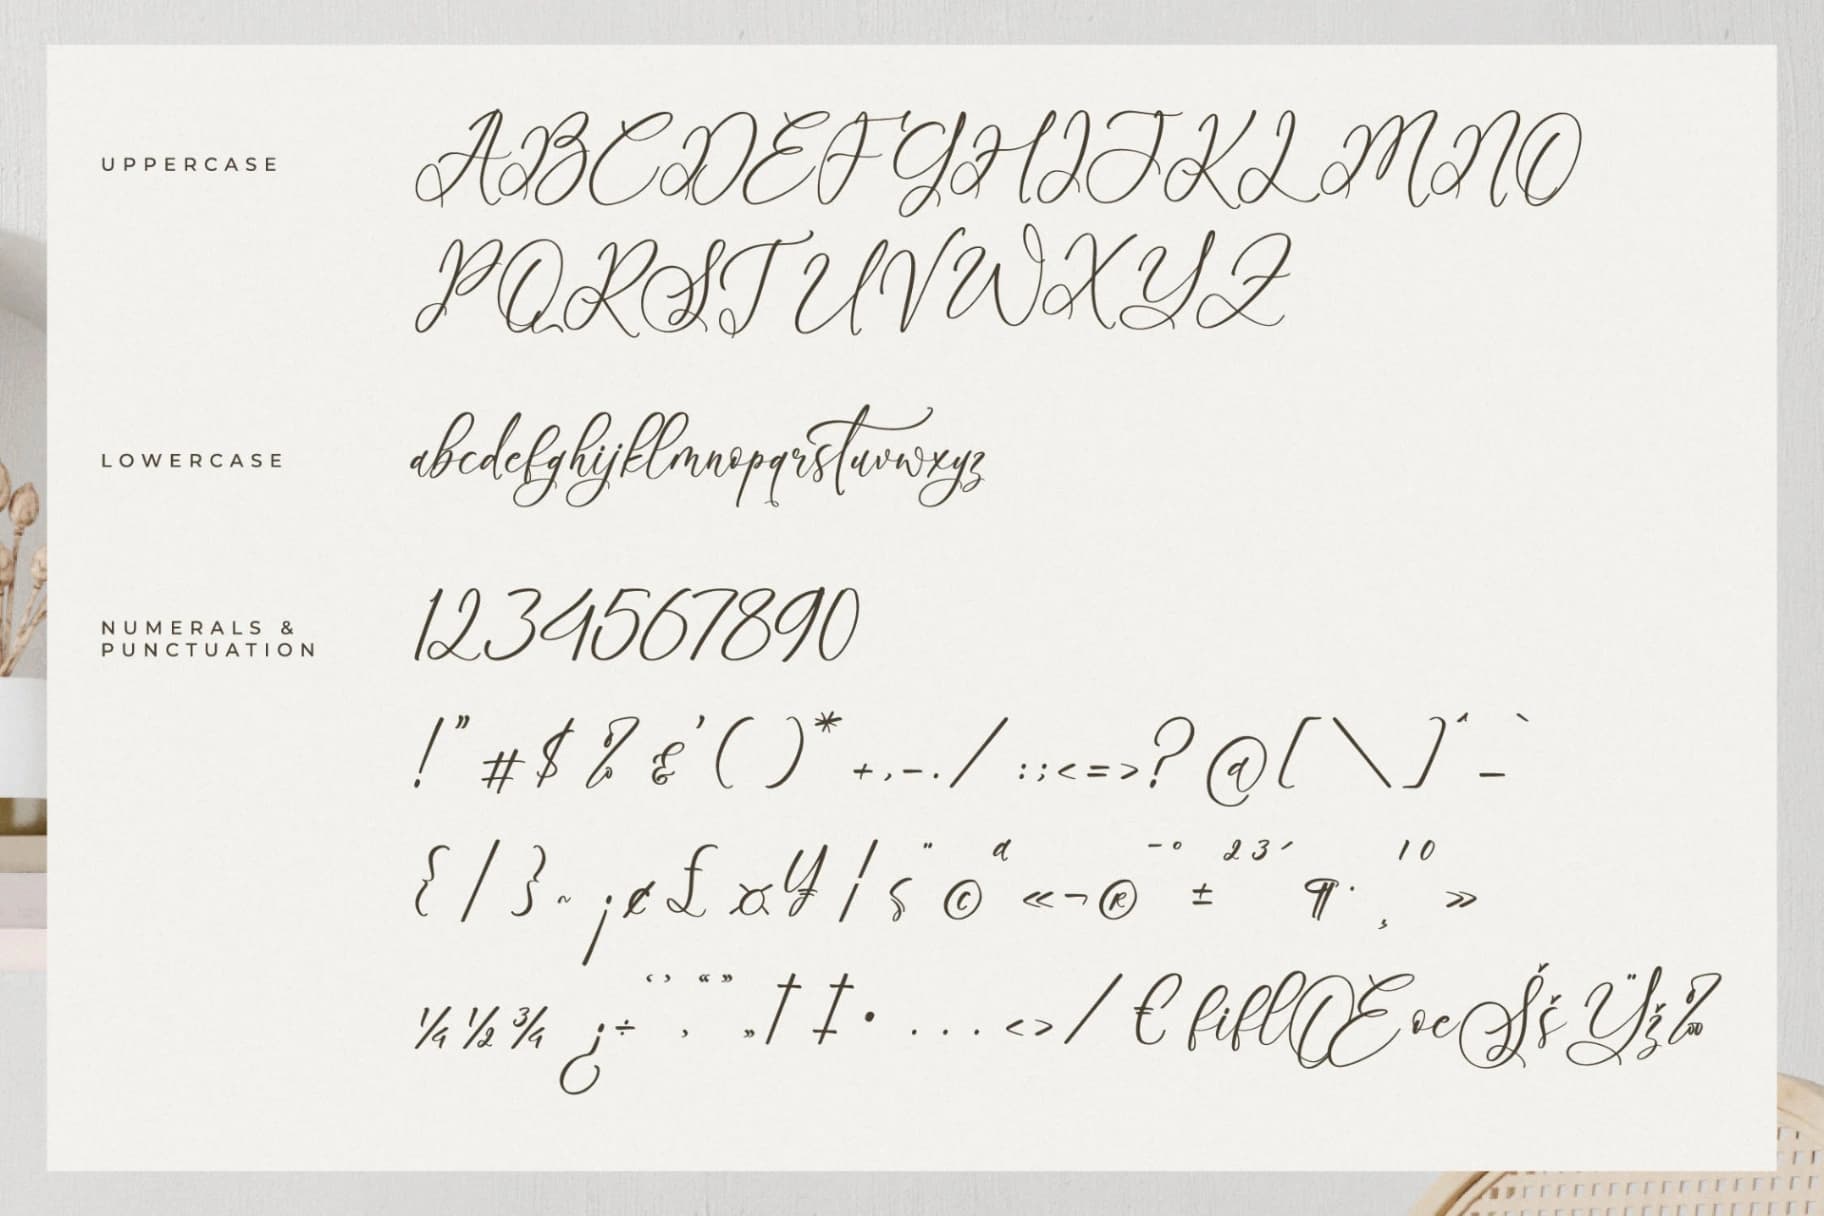 UPPERCASE
ABCDEFGHIJKLMNO
PQRSTUVWXYZ
LOWERCASE
abcdefghijklmnopqrstuvwxyz
NUMERALS &
PUNCTUATION
1234567890
!"#$%&'()*+,-./:;<=>?@[\]^_`
{|}~¡¢£¤¥¦§¨©ª«¬®¯°±²³´¶·¸¹º»
¼½¾¿÷‘’‚“”„†‡•...‹›⁄€fiflŒœŠšŸž‰